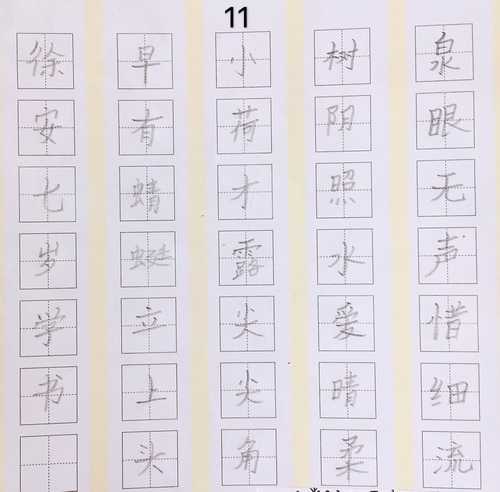 11
泉眼无声惜细流
树阴照水爱晴柔
小荷才露尖尖角
早有蜻蜓立上头
徐安七岁学书